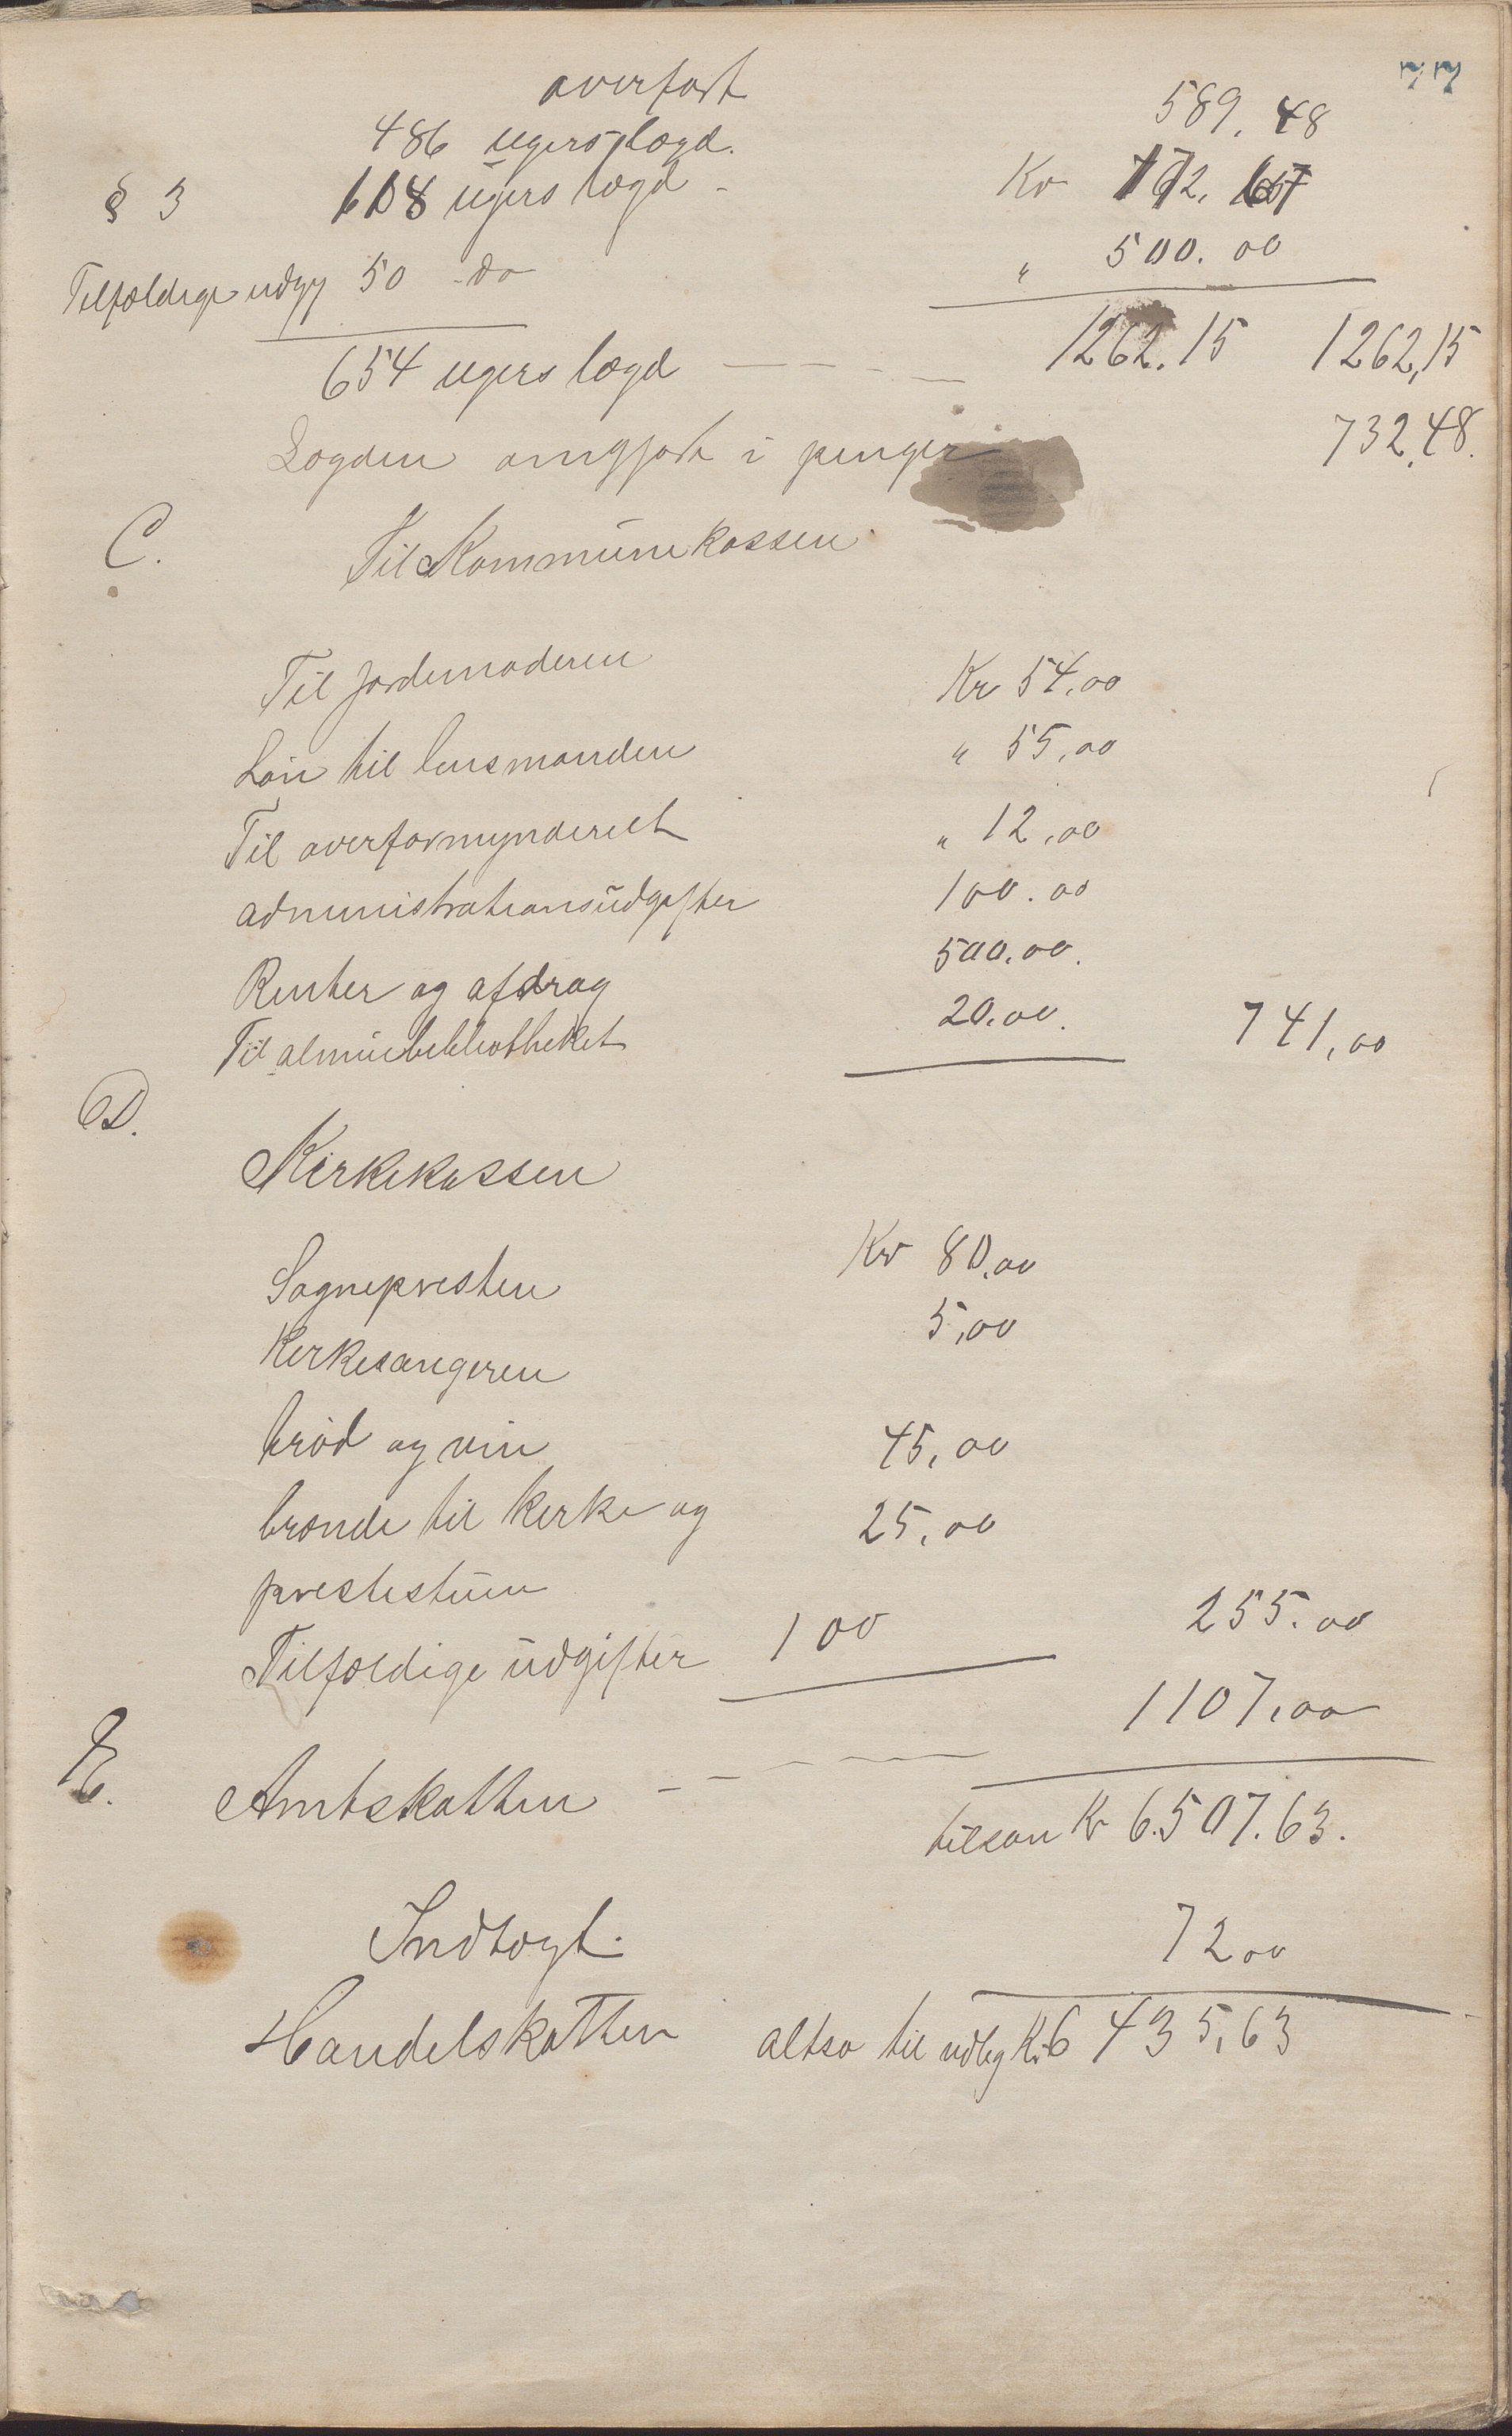 overført
486 ugers lægd. 589.48
§ 3 118 ugers lægd - Kr 172.67
Tilfældige udgy 50 do " 500.00
654 ugers lægd - - - - 1262.15 1262,15
Lægden omgjort i penger 732,48.
C. Til Kommunekassen
Til jordemoderen Kr 54,00
Løn til lensmanden " 55,00
Til overformynderiet " 12,00
administrationsudgifter 100.00
Renter og afdrag 500,00.
Til almuebibliotheket 20.00. 741,00
D.
Kirkekassen
Sognepresten Kr 80,00
Kirkesangeren 5,00
brød og vin 45,00
brænde til kirke og 25,00
prestestuen
Tilfældige udgifter 100 255.00
E. Amtskatten - - - - 1107,00
tilsam Kr 6.507.63.
Indtægt.
Handelskatten 7200
altsa til udlig Kr 6435,63